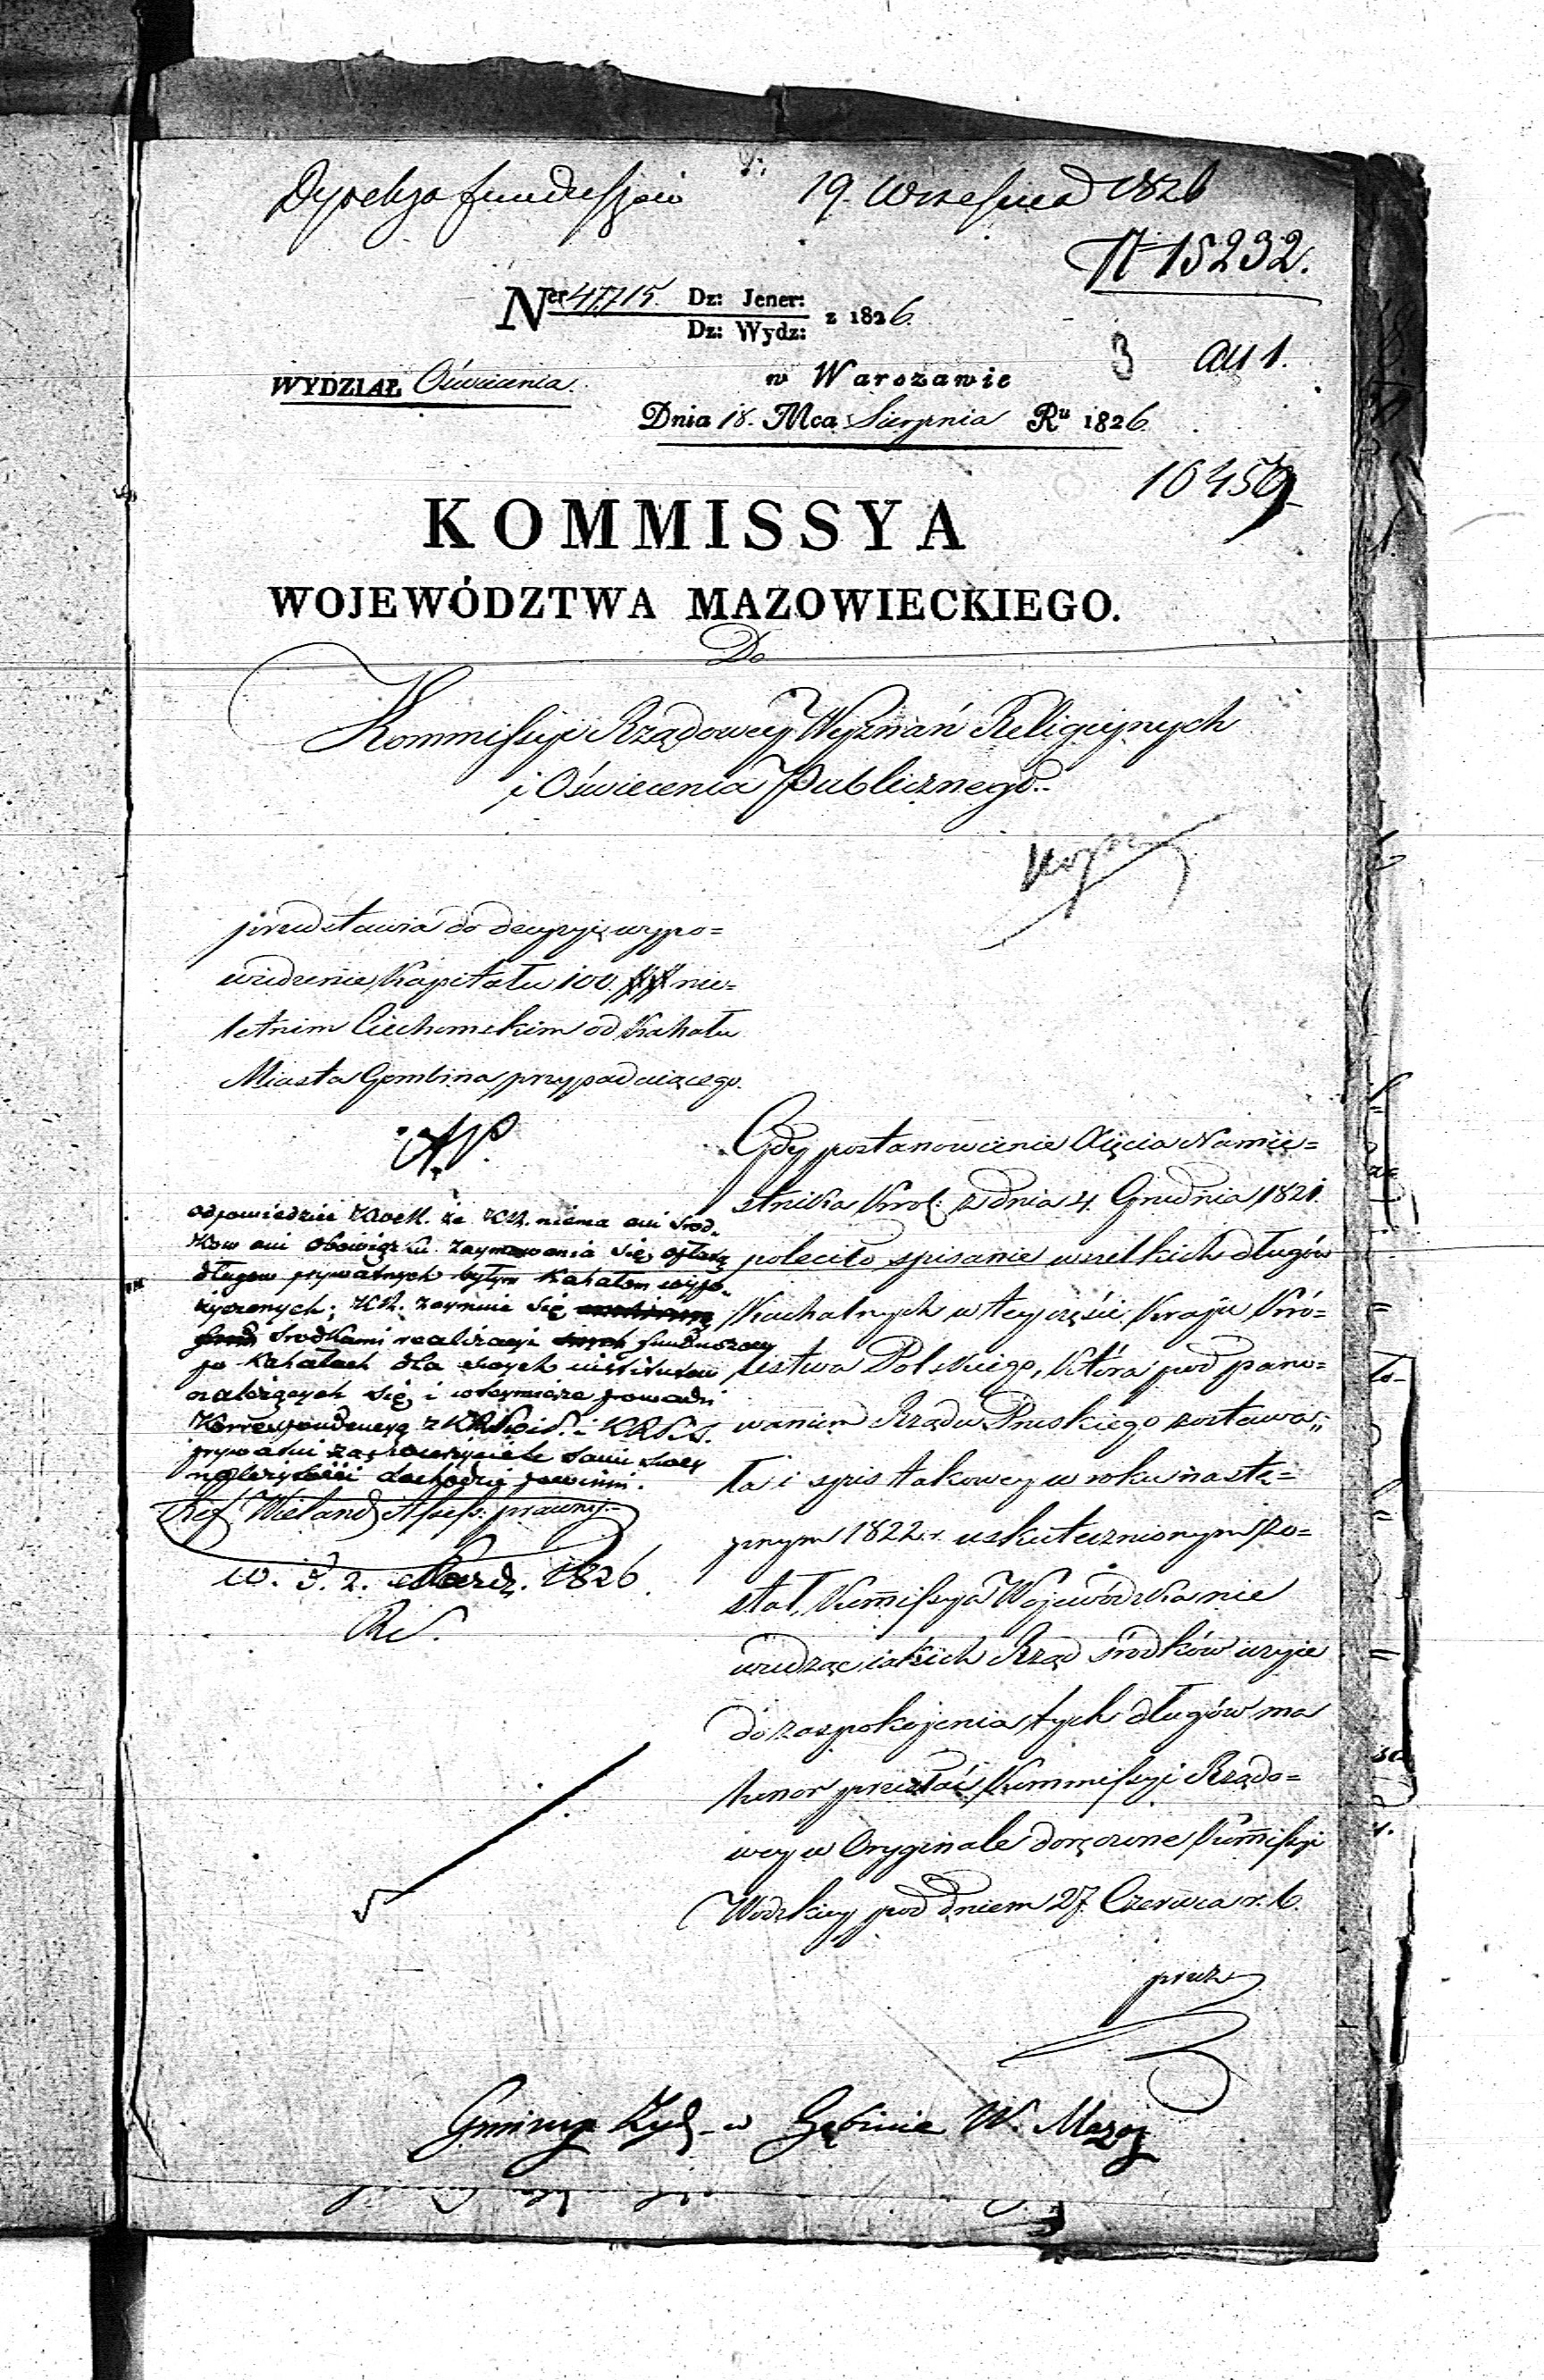 Dyrekcya funduszów 19. Wrzesnia 1826
N 15232.
Ner 47715. Dz: Jener:
Dz: Wydz: z 1826.
3 au 1.
WYDZIAŁ Oświecenia.
w Warszawie
Dnia 18. Mca Sierpnia Ru 1826.
KOMMISSYA
WOJEWÓDZTWA MAZOWIECKIEGO.
Do
Kommissyi Rządowey Wyznań Religiynych
i Oświecenia Publicznego.
przedstawia do decyzyi wypo=
wiedzenie Kapitału 100. nie=
letnim Ciechomskim od Kahału
Miasta Gombina przypadaiącego.
odpowiedzieć że KR. niema ani srod„
kow ani obowiązku zaymowania się opłatą
długow prywatnych byłym Kahałom wypo„
życzonych; KR. zaymuie się
srodkami realizacyi funduszow
po Kahałach dla swych institutow
należących się i wtéymierze prowadzi
Korrespondencyą z
prywatni zaś wierzyciele sami swey
należytości dochodzić powinni.
Ref Wieland Assess. prawny.
w. 3. 2. Paźdz. 1826.
Gdy postanowienie Xięcia Namie=
stnika Król: z dnia 4. Grudnia 1821.
poleciło spisanie wszelkich długów
Kachalnych w tey części Kraju Kró=
lestwa Polskiego, która pod pano=
waniem Rządu Pruskiego zostawa„
ła i spis takowey w roku nastę=
pnym 1822. r. uskutecznionym zo=
stał, Kommissya Wojewódzka nie
wiedząc iakich Rząd środków użyie
do zaspokojenia tych długów ma
honor przesłać Kommissyi Rządo=
wey w Oryginale doręczone Kommissyi
Wodzkiey pod dniem 27. Czerwca r. b.
przez
Gminy Żyd. w Gąbinie W. Mazow